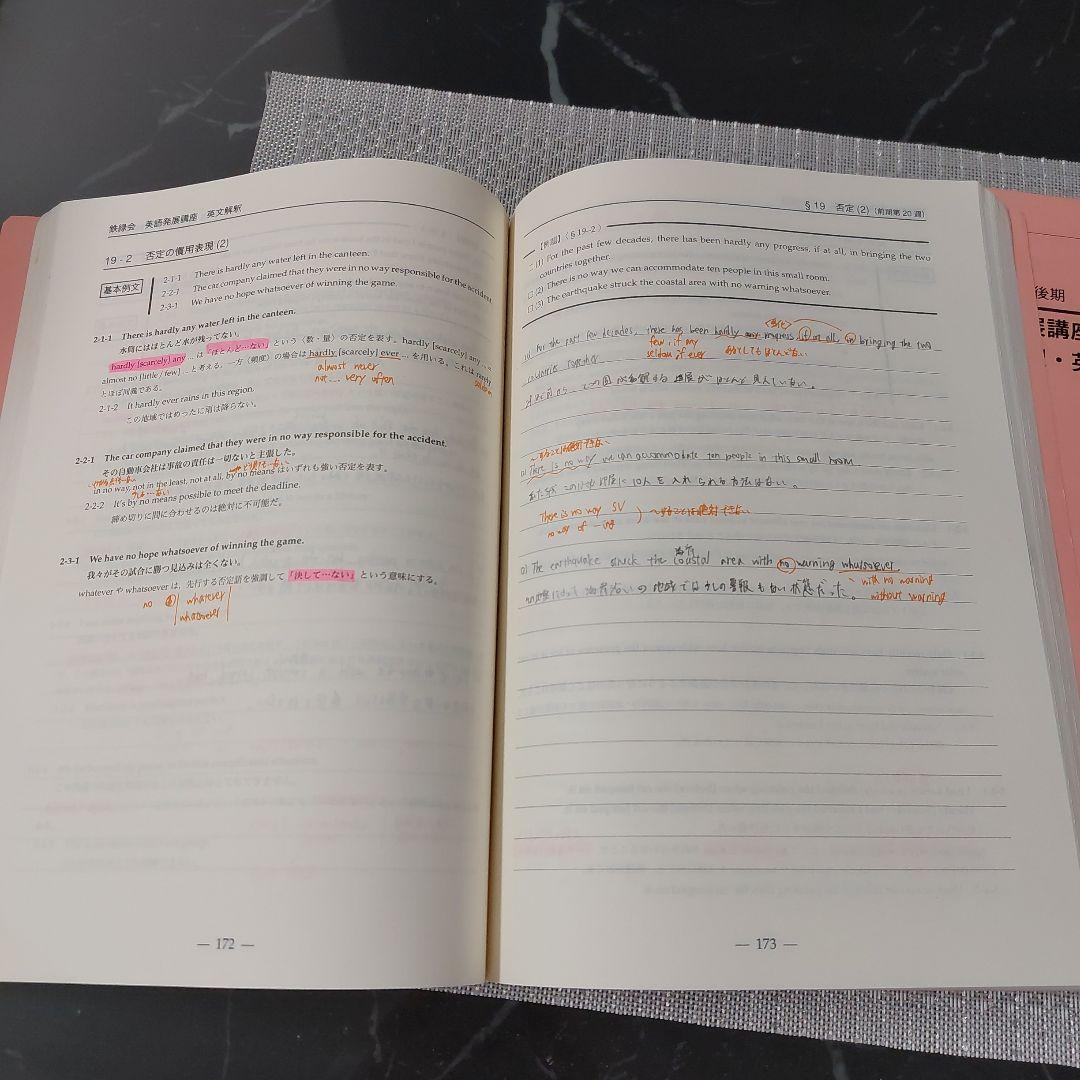 鉄緑会 英語発展講座 英文解釈
19 - 2 否定の慣用表現 (2)
基本例文
2-1-1 There is hardly any water left in the canteen.
2-2-1 The car company claimed that they were in no way responsible for the accident.
2-3-1 We have no hope whatsoever of winning the game.
2-1-1 There is hardly any water left in the canteen.
水筒にはほとんど水が残ってない。
hardly [scarcely] any … は「ほとんど…ない」という〈数・量〉の否定を表す。hardly [scarcely] any … =
almost no [little / few] … と考える。一方〈頻度〉の場合は hardly [scarcely] ever … を用いる。これは rarely
とほぼ同義である。
almost never
not … very often
seldom
2-1-2 It hardly ever rains in this region.
この地域ではめったに雨は降らない。
2-2-1 The car company claimed that they were in no way responsible for the accident.
その自動車会社は事故の責任は一切ないと主張した。
in no way, not in the least, not at all, by no means はいずれも強い否定を表す。
2-2-2 It's by no means possible to meet the deadline.
締め切りに間に合わせるのは絶対に不可能だ。
2-3-1 We have no hope whatsoever of winning the game.
我々がその試合に勝つ見込みは全くない。
whatever や whatsoever は、先行する否定語を強調して「決して…ない」という意味にする。
no 名 whatever
whatsoever
— 172 —
§ 19 否定 (2) (前期第 20 週)
【例題】(§ 19-2)
□ (1) For the past few decades, there has been hardly any progress, if at all, in bringing the two
countries together.
□ (2) There is no way we can accommodate ten people in this small room.
□ (3) The earthquake struck the coastal area with no warning whatsoever.
〈強化〉
(1). For the past few decades, there has been hardly any progress if at all, in bringing the two
few, if any
countries together.
seldom, if ever
There is no way we can accommodate ten people in this small room
There is no way SV
no way of -ing
The earthquake struck the coastal area with no warning whatsoever.
with no warning
without warning
— 173 —
後期